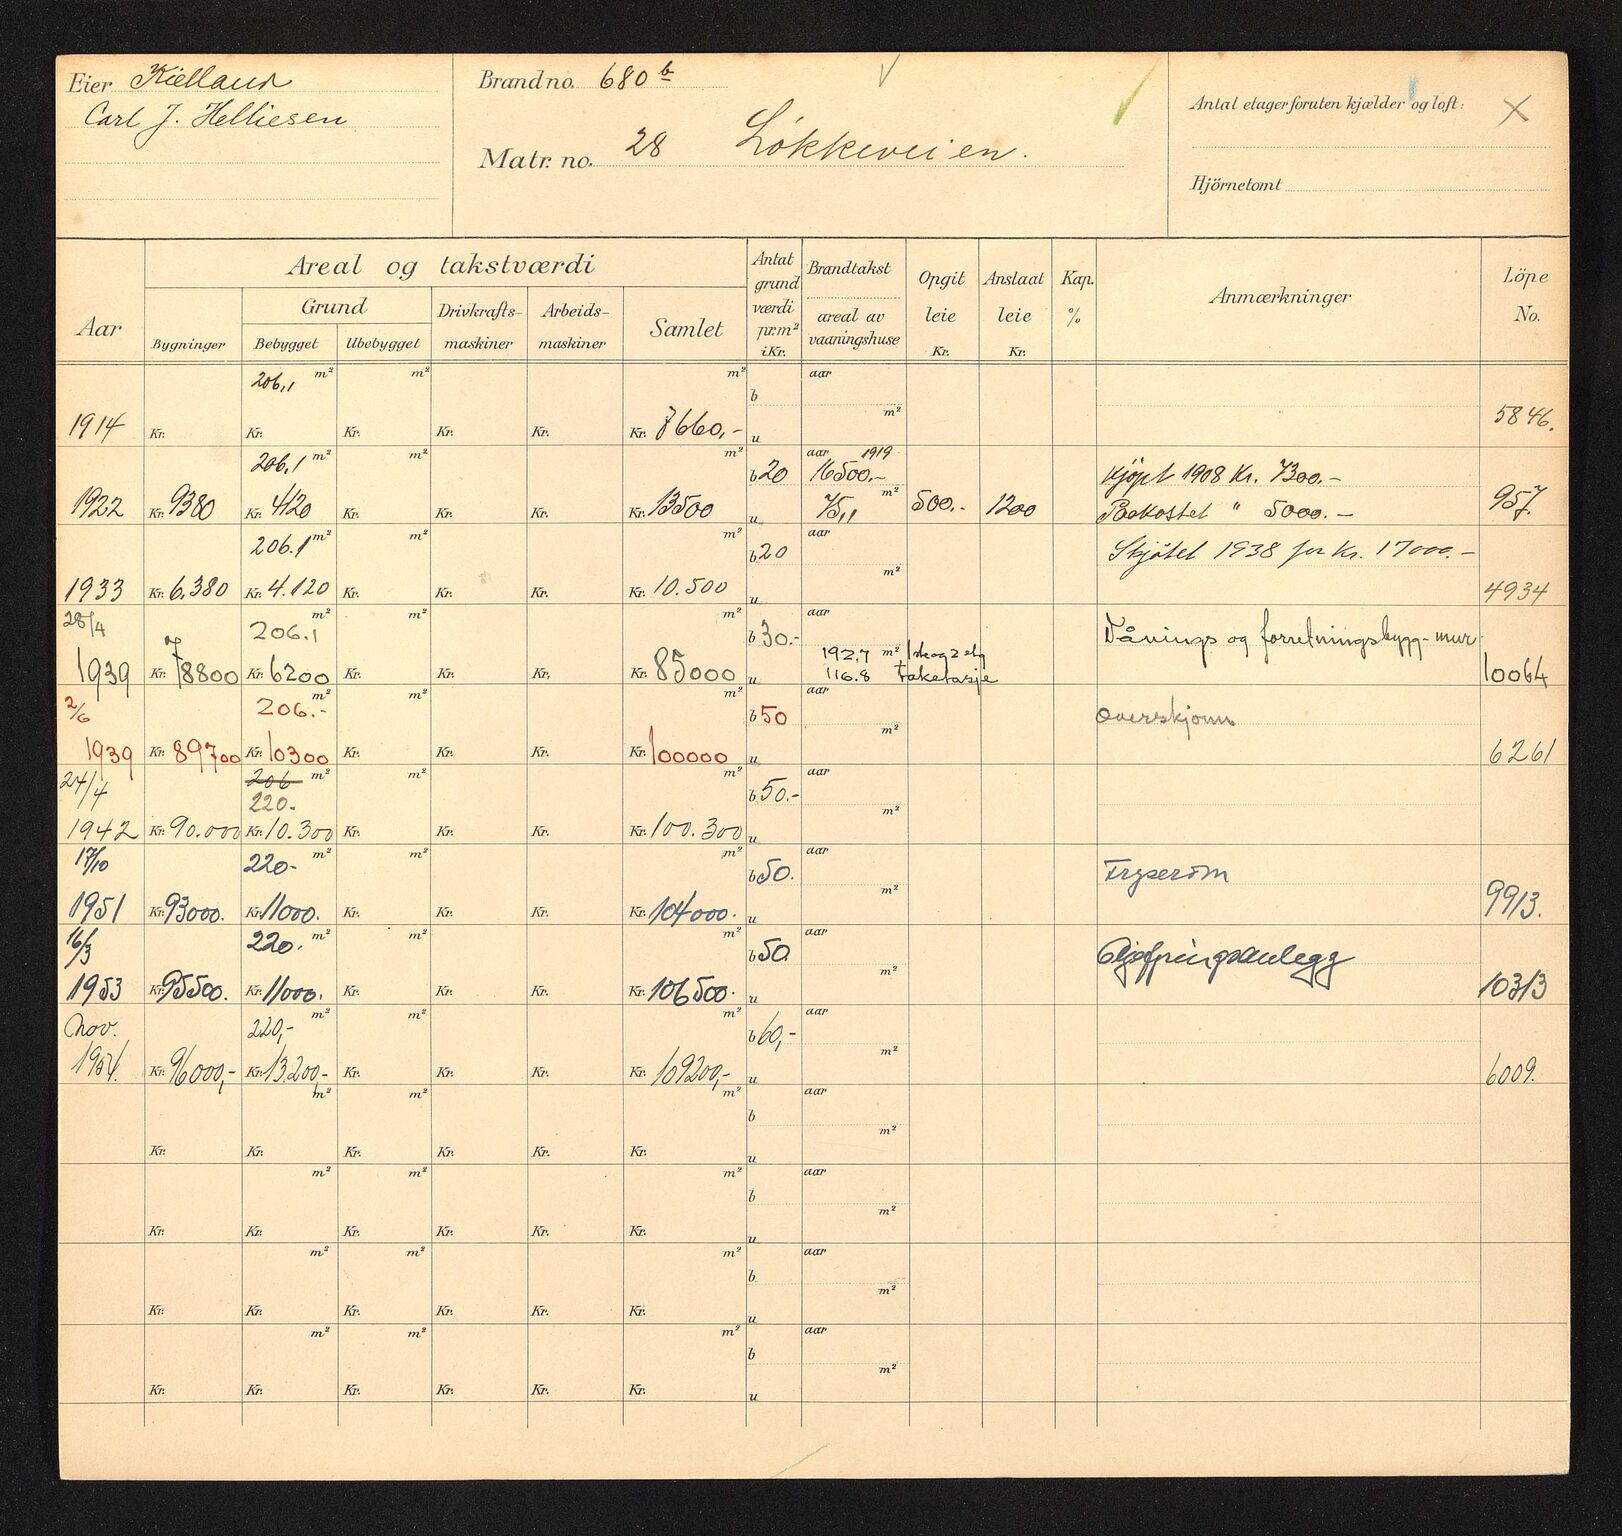 Eier Kielland
Carl J. Helliesen
Brandno. 680 b
Matr. no. 28 Løkkeveien.
Antal etager foruten kjælder og loft:
Hjörnetomt
Aar
Areal og takstværdi
Bygninger
Grund
Bebygget
Ubebygget
Drivkrafts-
maskiner
Arbeids-
maskiner
Samlet
Antat
grund
værdi
pr.m²
i Kr.
Brandtakst
areal av
vaaningshuse
Opgit
leie
Kr.
Anslaat
leie
Kr.
Kap.
%
Anmærkninger
Löpe
No.
206,1 m² m² m² aar
b
m²
1914 Kr. Kr. Kr. Kr. Kr. Kr. 7660,- u 5846.
206,1 m² m² m² aar 1919
b 20 16500.- Kjöpt 1908 Kr. 7300.-
m²
1922 Kr. 9380 Kr. 4120 Kr. Kr. Kr. Kr. 13500 u 75,1 500.- 1200 Bekostet " 5000.- 957.
206.1 m² m² m² aar
b 20 Skjøtet 1938 for Kr. 17000.-
m²
1933 Kr. 6.380 Kr. 4.120 Kr. Kr. Kr. Kr. 10.500 u 4934
28/4 206.1 m² m² m² aar
b 30.- Vånings og forretningsbygg-mur
192,7 m² 1ste og 2 etg
1939 Kr. 78800 Kr. 6200 Kr. Kr. Kr. Kr. 85000 u 116.8 taketasje 10064
2/6 206.- m² m² m² aar
b 50 Overskjønn
m²
1939 Kr. 89700 Kr. 10300 Kr. Kr. Kr. Kr. 100000 u 6261
24/4 206 m² m² m² aar
220.- b 50.-
m²
1942 Kr. 90.000 Kr. 10.300 Kr. Kr. Kr. Kr. 100.300 u
17/10 220- m² m² m² aar
b 50. Fryserom
m²
1951 Kr. 93000. Kr. 11000. Kr. Kr. Kr. Kr. 104000. u 9913.
16/3 220. m² m² m² aar
b 50
m²
1953 Kr. 95500. Kr. 11000. Kr. Kr. Kr. Kr. 106500. u 10313
Nov. 220,- m² m² m² aar
b 60,-
m²
1954. Kr. 96000,- Kr. 13.200- Kr. Kr. Kr. Kr. 109200,- u 6009.
m² m² m² aar
b
m²
Kr. Kr. Kr. Kr. Kr. Kr. u
m² m² m² aar
b
m²
Kr. Kr. Kr. Kr. Kr. Kr. u
m² m² m² aar
b
m²
Kr. Kr. Kr. Kr. Kr. Kr. u
m² m² m² aar
b
m²
Kr. Kr. Kr. Kr. Kr. Kr. u